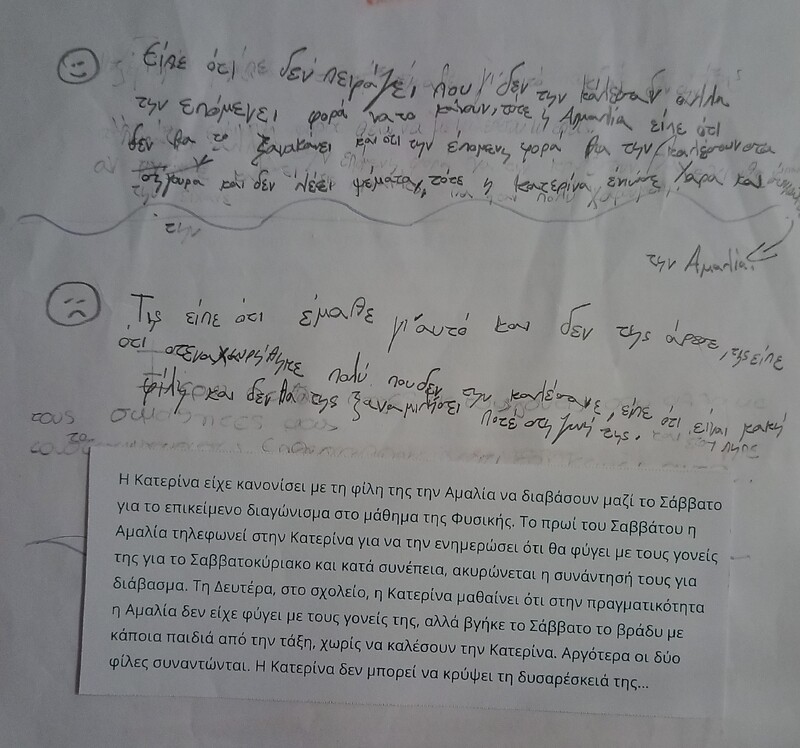 Είπε ότι δεν πειράζει που δεν την κάλεσαν αλλα
την επόμενει φορά να το κάνουν, τοτε η Αμαλία είπε ότι
δεν θα το ξανακανει και ότι την επόμενη φορα θα την καλέσουν στα
σίγουρα και δεν λέει ψέματα, τότε η κατερίνα ένιωσε χαρα και
την Αμαλία.
Της είπε ότι έμαθε γι'αυτό και δεν της άρεσε, της είπε
ότι στεναχωρήθηκε πολύ που δεν την καλέσανε, είπε ότι είναι κακή
φίλη και δεν θα της ξαναμιλήσει ποτέ στη ζωή της.
Η Κατερίνα είχε κανονίσει με τη φίλη της την Αμαλία να διαβάσουν μαζί το Σάββατο
για το επικείμενο διαγώνισμα στο μάθημα της Φυσικής. Το πρωί του Σαββάτου η
Αμαλία τηλεφωνεί στην Κατερίνα για να την ενημερώσει ότι θα φύγει με τους γονείς
της για το Σαββατοκύριακο και κατά συνέπεια, ακυρώνεται η συνάντησή τους για
διάβασμα. Τη Δευτέρα, στο σχολείο, η Κατερίνα μαθαίνει ότι στην πραγματικότητα
η Αμαλία δεν είχε φύγει με τους γονείς της, αλλά βγήκε το Σάββατο το βράδυ με
κάποια παιδιά από την τάξη, χωρίς να καλέσουν την Κατερίνα. Αργότερα οι δύο
φίλες συναντώνται. Η Κατερίνα δεν μπορεί να κρύψει τη δυσαρέσκειά της...